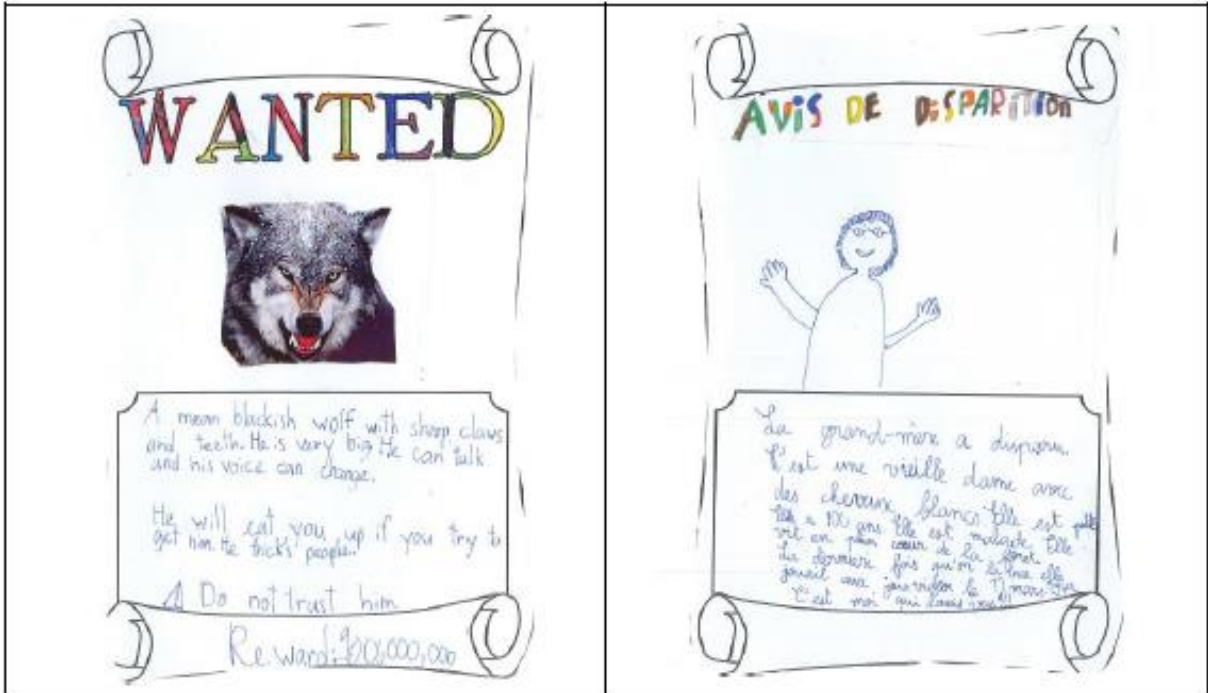 WANTED
A mean blackish wolf with sharp claws
and teeth. He is very big. He can talk
and his voice can change.
He will eat you up if you try to
get him. He tricks people.
⚠ Do not trust him
Reward: 900,000,000
AViS DE DiSPARiTiOn
La grand-mère a disparu.
C'est une vieille dame avec
des cheveux blancs. Elle est
Elle a 100 ans. Elle est malade. Elle
vit en plein cœur de la forêt.
La dernière fois qu'on l'a vue elle
jouait aux jeux vidéos le 17 mars
C'est moi qui l'avais vue!!!